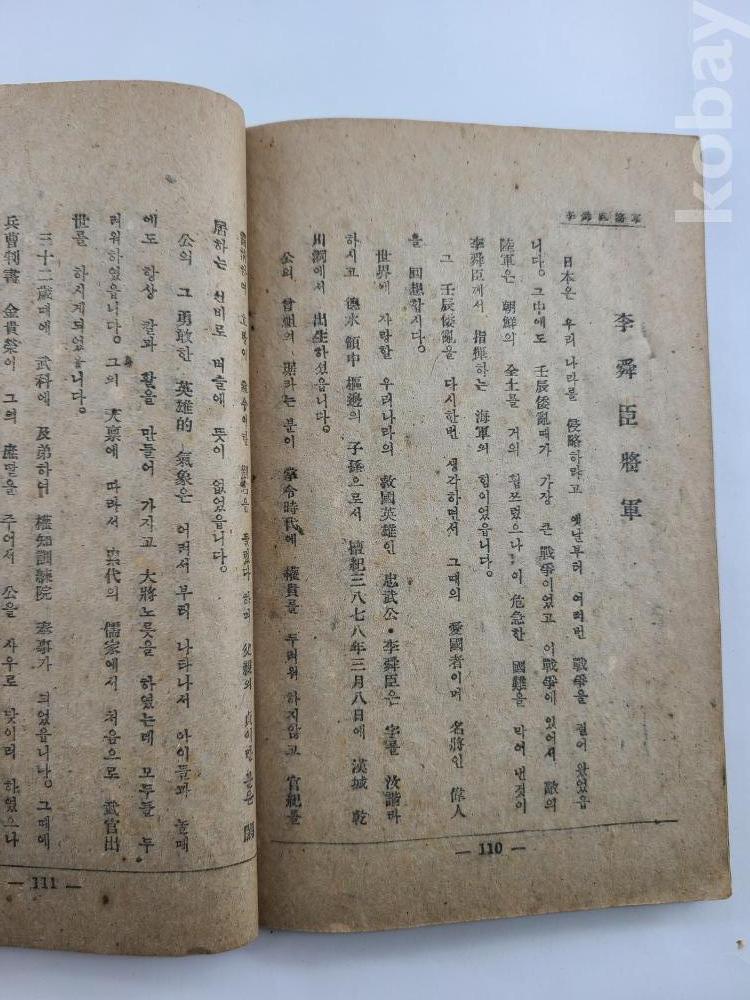 李舜臣將軍
李舜臣將軍
日本은 우리 나라를 侵略하랴고 옛날부터 여러번 戰爭을 걸어 왔었읍
니다。그中에도 壬辰倭亂때가 가장 큰 戰爭이었고 이戰爭에 있어서 敵의
陸軍은 朝鮮의 全土를 거의 휩쓰렀으나 이 危急한 國難을 막어 낸것이
李舜臣께서 指揮하는 海軍의 힘이었읍니다。
그 壬辰倭亂을 다시한번 생각하면서 그때의 愛國者이며 名將인 偉人
을 回想합시다。
世界에 자랑할 우리나라의 救國英雄인 忠武公・李舜臣은 字를 汝諧라
하시고 德水 領中樞邊의 子孫으로서 檀紀三八七八年三月八日에 漢城 乾
川洞에서 出生하셨읍니다。
公의 曾祖의 琚라는 분이 掌令時代에 權貴를 두려워 하지않고 官紀를
— 110 —
父親의 貞이란 분은 隱
居하는 선비로 벼슬에 뜻이 없었읍니다。
公의 그 勇敢한 英雄的 氣象은 어려서 부터 나타나서 아이들과 놀때
에도 항상 칼과 활을 만들어 가지고 大將노릇을 하였는데 모두들 두
려워하였읍니다。그의 天稟에 따라서 累代의 儒家에서 처음으로 武官出
世를 하시게되었읍니다。
三十二歲때에 武科에 及第하여 權知訓練院 奉事가 되었읍니다。그때에
兵曹判書 金貴榮이 그의 庶딸을 주어서 公을 사우로 맞이려 하였으나
— 111 —
kobay